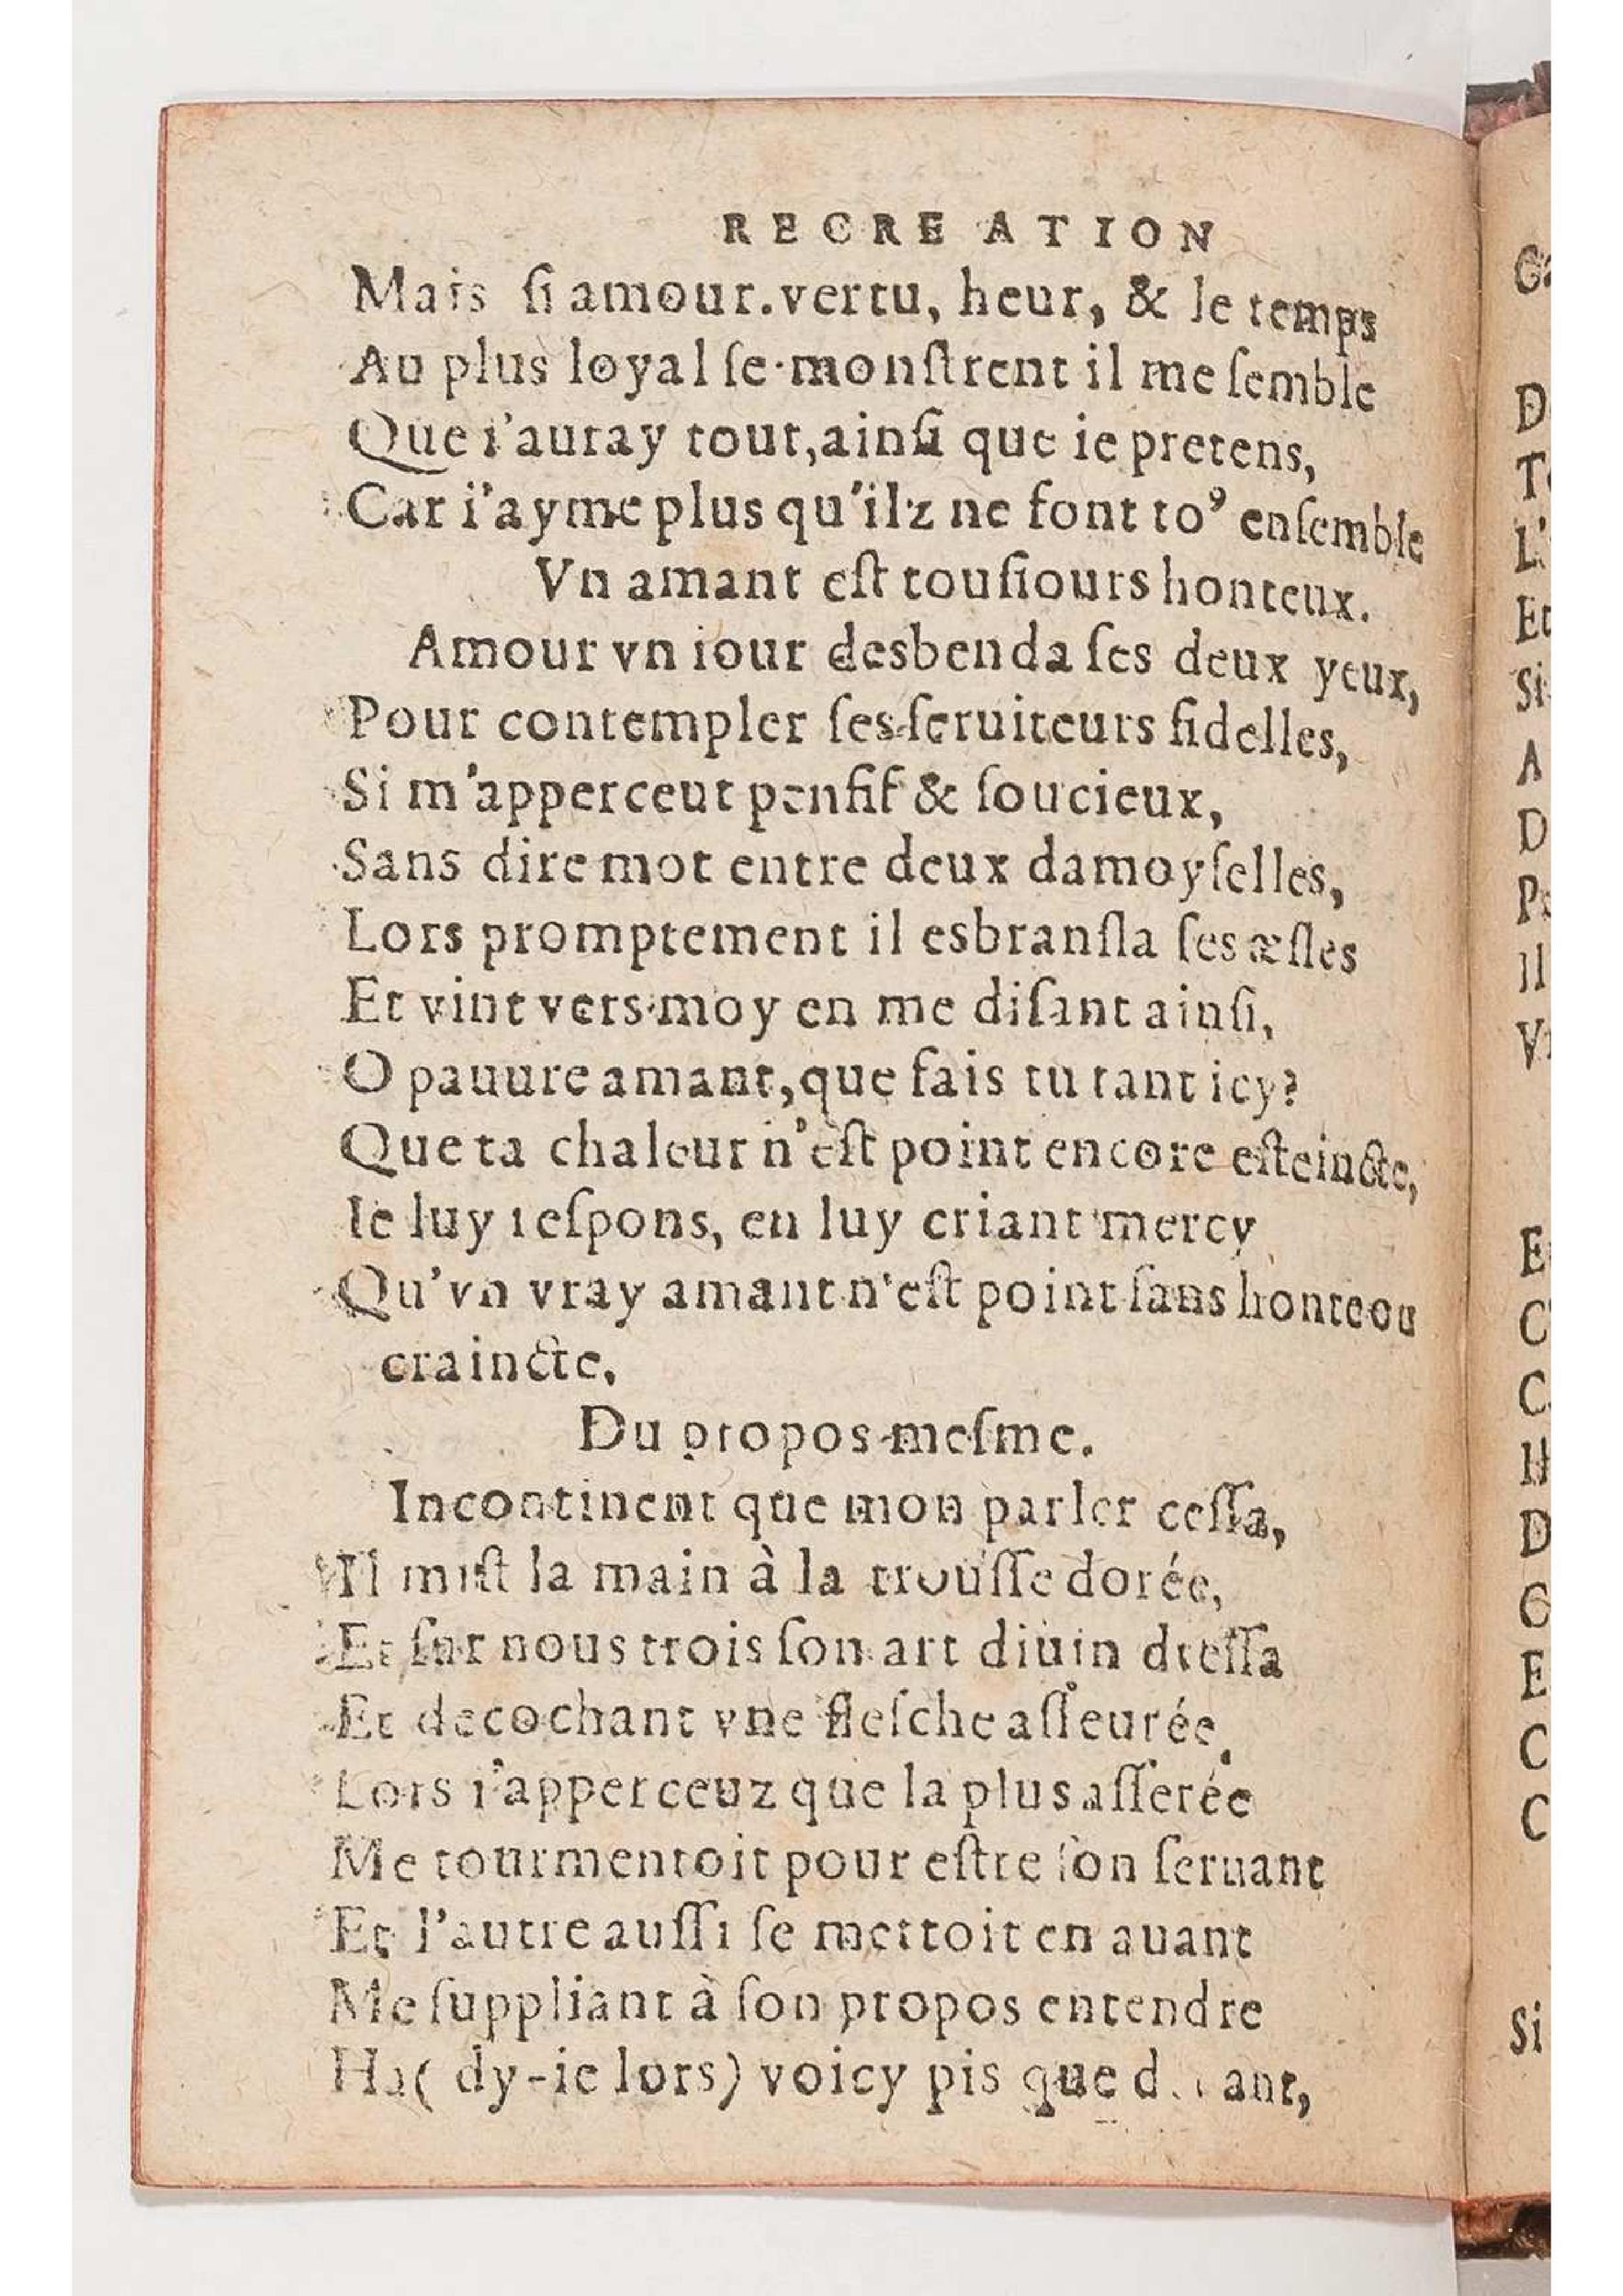 RECREATION
Mais ſi amour.vertu, heur, & le temps
Au plus loyal ſe monſtrent il me ſemble
Que i'auray tout,ainſi que ie pretens,
Car i'ayme plus qu'ilz ne font to⁹ enſemble
Vn amant eſt touſiours honteux.
Amour vn iour desbenda ſes deux yeux,
Pour contempler ſes ſeruiteurs fidelles,
Si m'apperceut penſif & ſoucieux,
Sans dire mot entre deux damoyſelles,
Lors promptement il esbranſla ſes æſles
Et vint vers moy en me diſant ainſi,
O pauure amant,que fais tu tant icy?
Que ta chaleur n'eſt point encore eſteincte,
Ie luy reſpons, en luy criant mercy
Qu'vn vray amant n'eſt point ſans honte ou
craincte,
Du propos meſme.
Incontinent que mon parler ceſſa,
Il miſt la main à la trouſſe dorée,
Et ſur nous trois ſon art diuin dreſſa
Et decochant vne fleſche aſſeurée,
Lors i'apperceuz que la plus aſſerée
Me tourmentoit pour eſtre ſon ſeruant
Et l'autre auſſi ſe mettoit en auant
Me ſuppliant à ſon propos entendre
Ha( dy-ie lors) voicy pis que
G
D
T
L'
Et
Si
A
D
P
Il
V
E
C
C
H
D
G
E
C
C
Si